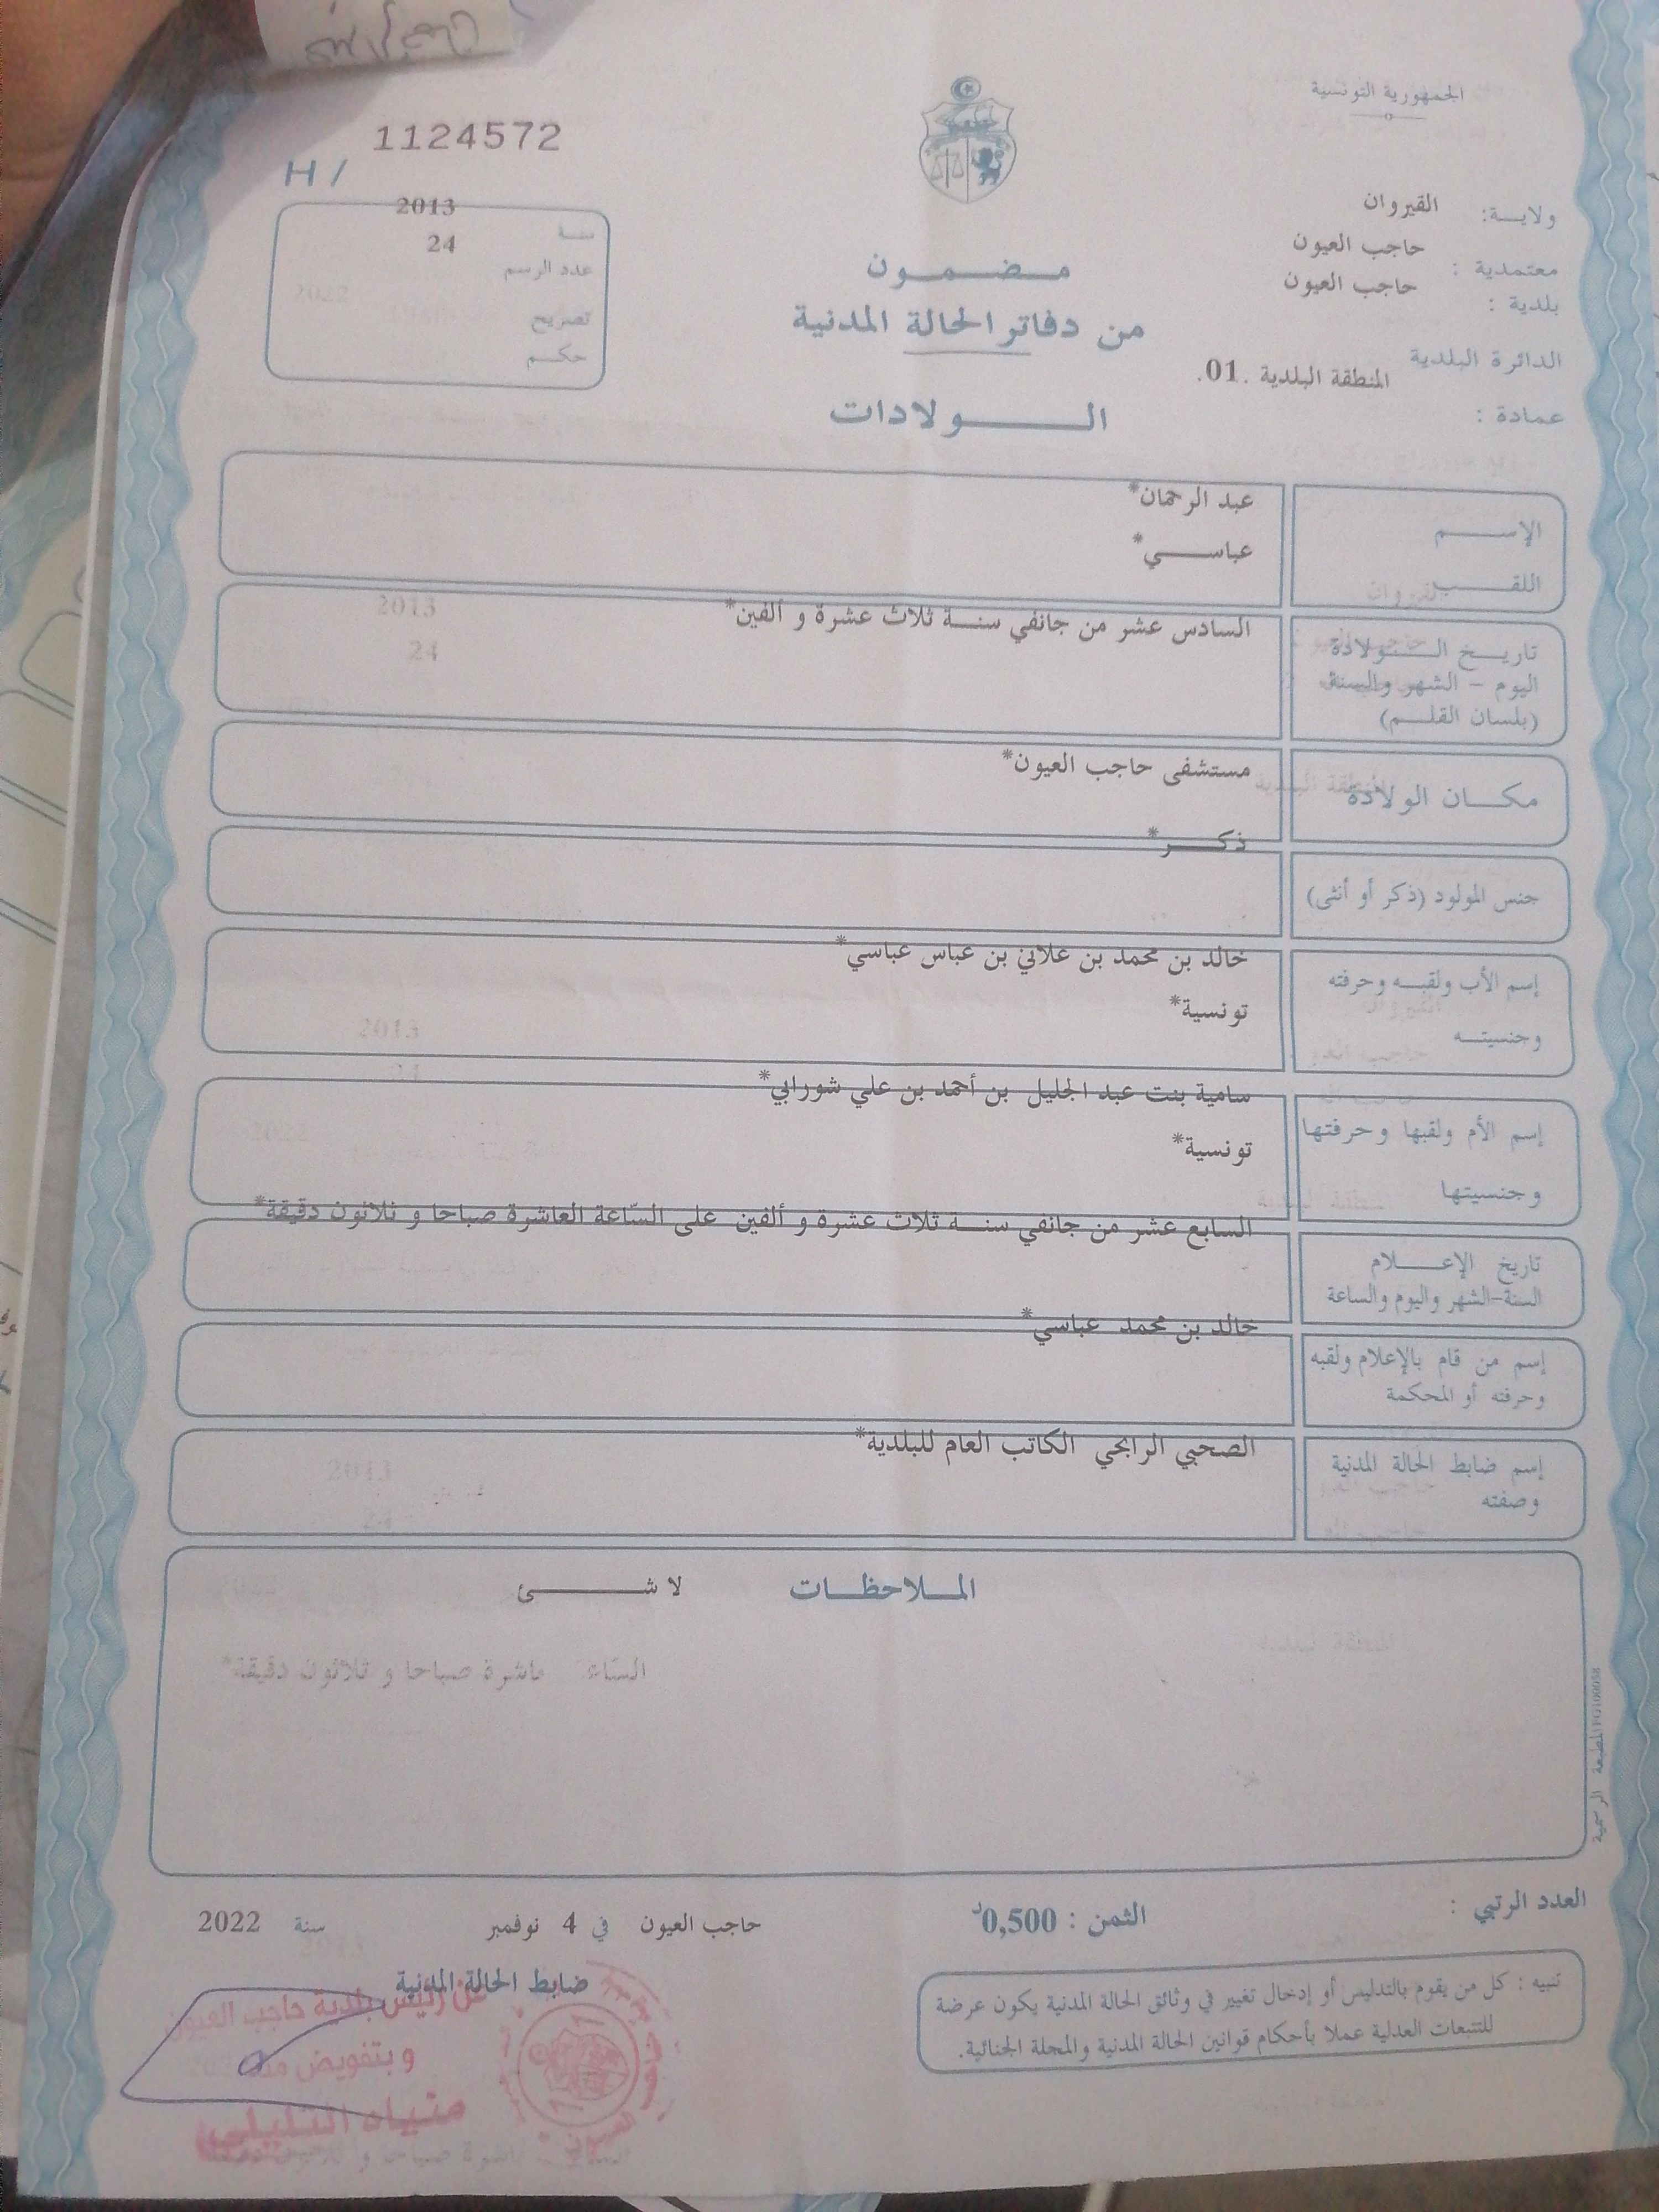 الجمهورية التونسية
1124572
H /
ولايـــة: القيروان
معتمدية : حاجب العيون
بلدية : حاجب العيون
الدائرة البلدية المنطقة البلدية .01.
عمادة :
سنة 2013
عدد الرسم 24
تصريح
حكم
مـضـمـون
من دفاتر الحالة المدنية
الـولادات
الإســـم عبد الرحمان*
اللقـــب عباســـي*
تاريـــخ الـــولادة السادس عشر من جانفي سنــة ثلاث عشرة و ألفين*
اليوم – الشهر والسنة
(بلسان القلـــم)
مكـــان الولادة مستشفى حاجب العيون*
جنس المولود (ذكر أو أنثى) ذكـــر*
إسم الأب ولقبـــه وحرفته خالد بن محمد بن علاني بن عباس عباسي*
وجنسيتـــه تونسية*
إسم الأم ولقبها وحرفتها سامية بنت عبد الجليل بن أحمد بن علي شورابي*
وجنسيتها تونسية*
تاريخ الإعـــلام السابع عشر من جانفي سنــة ثلاث عشرة و ألفين على السّاعة العاشرة صباحا و ثلاثون دقيقة*
السنة-الشهر واليوم والساعة
إسم من قام بالإعلام ولقبه خالد بن محمد عباسي*
وحرفته أو المحكمة
إسم ضابط الحالة المدنية الصحبي الرابحي الكاتب العام للبلدية*
وصفته
المـلاحظـات لا شـــئ
المطبعة الرسمية
العدد الرتبي :
الثمن : 0,500د
حاجب العيون في 4 نوفمبر سنة 2022
ضابط الحالة المدنية
عن رئيس بلدية حاجب العيون
وبتفويض منه
تنبيه : كل من يقوم بالتدليس أو إدخال تغيير في وثائق الحالة المدنية يكون عرضة
للتتبعات العدلية عملا بأحكام قوانين الحالة المدنية والمجلة الجنائية.